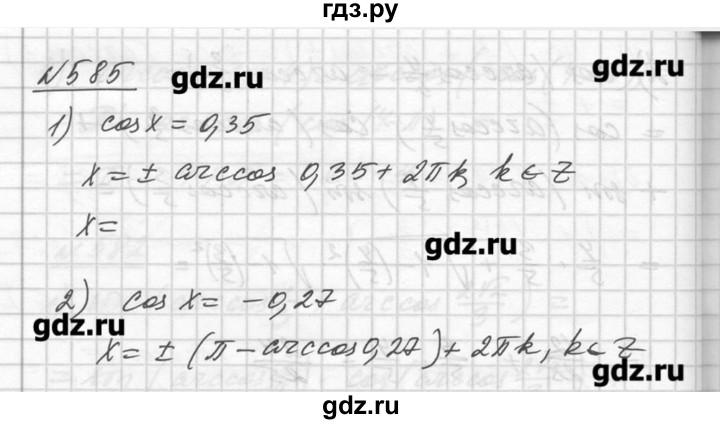 гдз.ру
№585
gdz.ru
gdz.ru
1) cos x = 0,35
x = ± arccos 0,35 + 2πk, k ∈ Z
x =
gdz.ru
2) cos x = -0,27
gdz.ru
x = ± (π - arccos 0,27) + 2πk, k ∈ Z
gdz.ru
gdz.ru